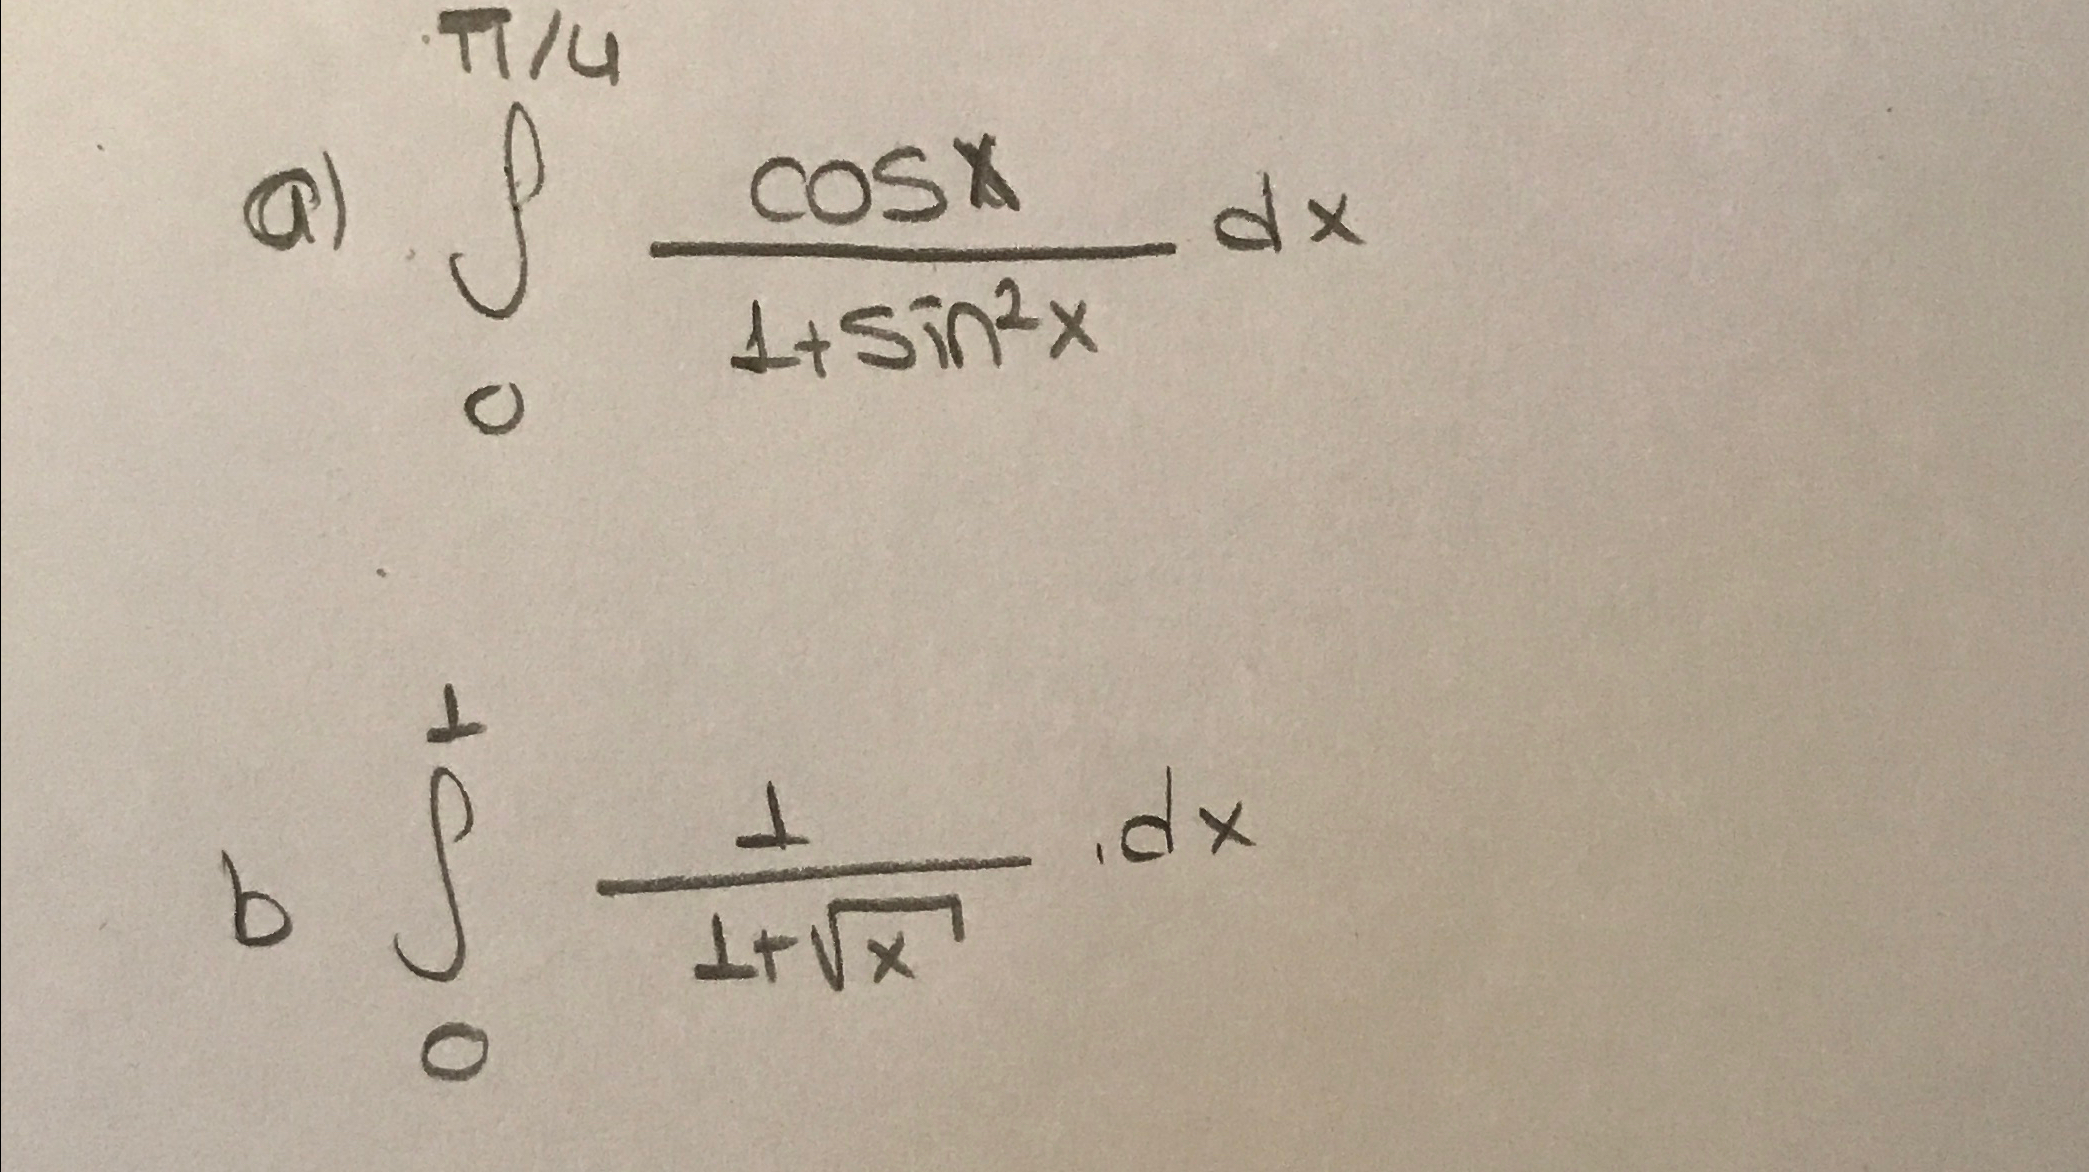 a) ∫₀^{π/4} cosx / 1+sin²x dx
b ∫₀^1 1 / 1+√x .dx